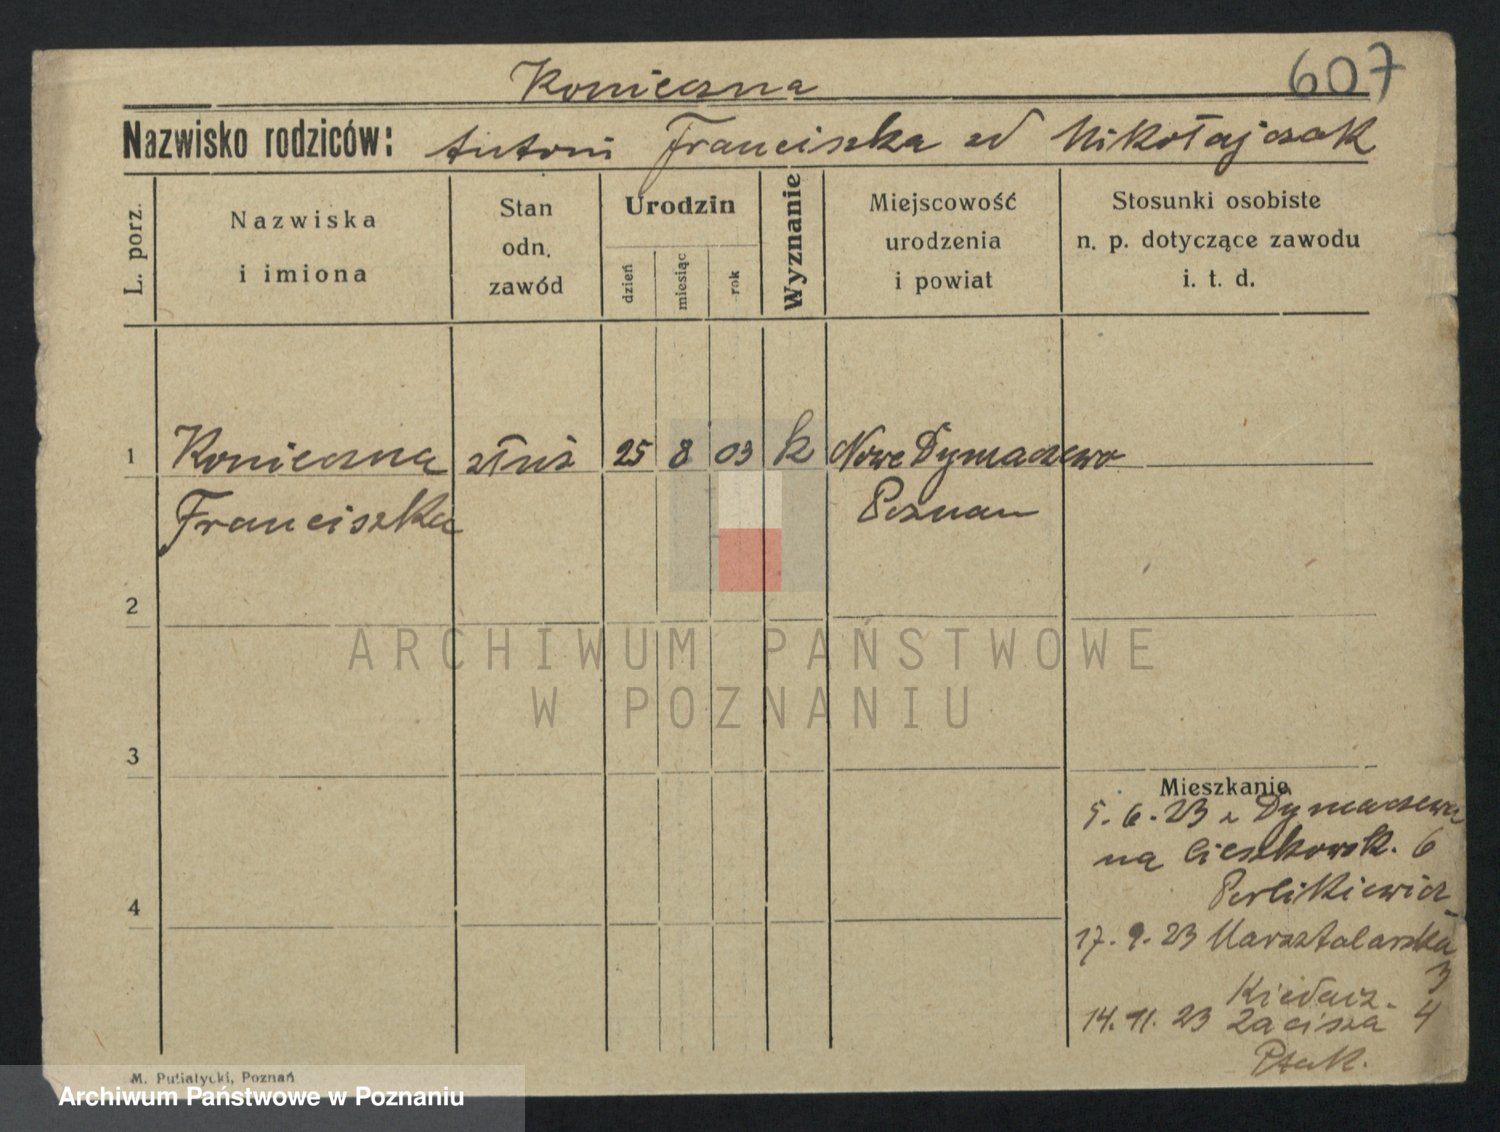 Konieczna
607
Nazwisko rodziców: Antoni Franciszka zd Mikołajczak
L. porz.
Nazwiska
i imiona
Stan
odn.
zawód
Urodzin
dzień
miesiąc
rok
Wyznanie
Miejscowość
urodzenia
i powiat
Stosunki osobiste
n. p. dotyczące zawodu
i. t. d.
1 Konieczna służ 25 8 03 k Nowe Dymaczewo
Franciszka Poznan
2
ARCHIWUM PAŃSTWOWE
W POZNANIU
3
Mieszkanie
5.6.23 z Dymaczewa
na Cieszkowsk. 6
Perlikiewicz
4
17.9.23 Marsztalarska
3
14.11.23 Zacisza 4
Ptak.
M. Putiatycki, Poznań
Archiwum Państwowe w Poznaniu